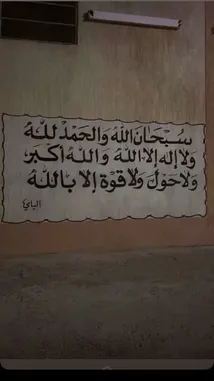 سُبْحَانَ اللهُ وَالحَمْدُ للهُ
وَلا إله إلا اللهُ وَاللهُ أكبَر
وَلا حَوْلَ وَلا قوة إلا بالله